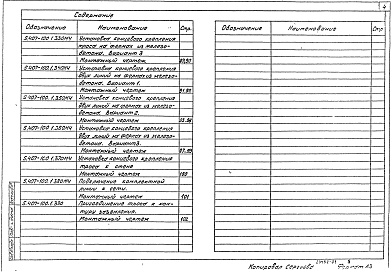 Содержание
4
Обозначение Наименование Стр.
5.407-100.1.330МЧ Установка концевого крепления
троса на фермах из железо-
бетона. Вариант 3
Монтажный чертеж
5.407-100.1.340МЧ Установка концевого крепления
двух линий на фермах из железо-
бетона. Вариант 1.
Монтажный чертеж
5.407-100.1.350МЧ Установка концевого крепления
двух линий на фермах из железо-
бетона. Вариант 2.
Монтажный чертеж
Установка концевого крепления
двух линий на фермах из железо-
бетона. Вариант 3.
Монтажный чертеж
Установка концевого крепления
троса к стене
Монтажный чертеж 100
Подключение комплектной
линии к сети.
Монтажный чертеж 101
5.407-100.1.390 Присоединение троса к кон-
туру заземления.
Монтажный чертеж 102
Обозначение Наименование Стр
Копировал Сергеева Формат А3